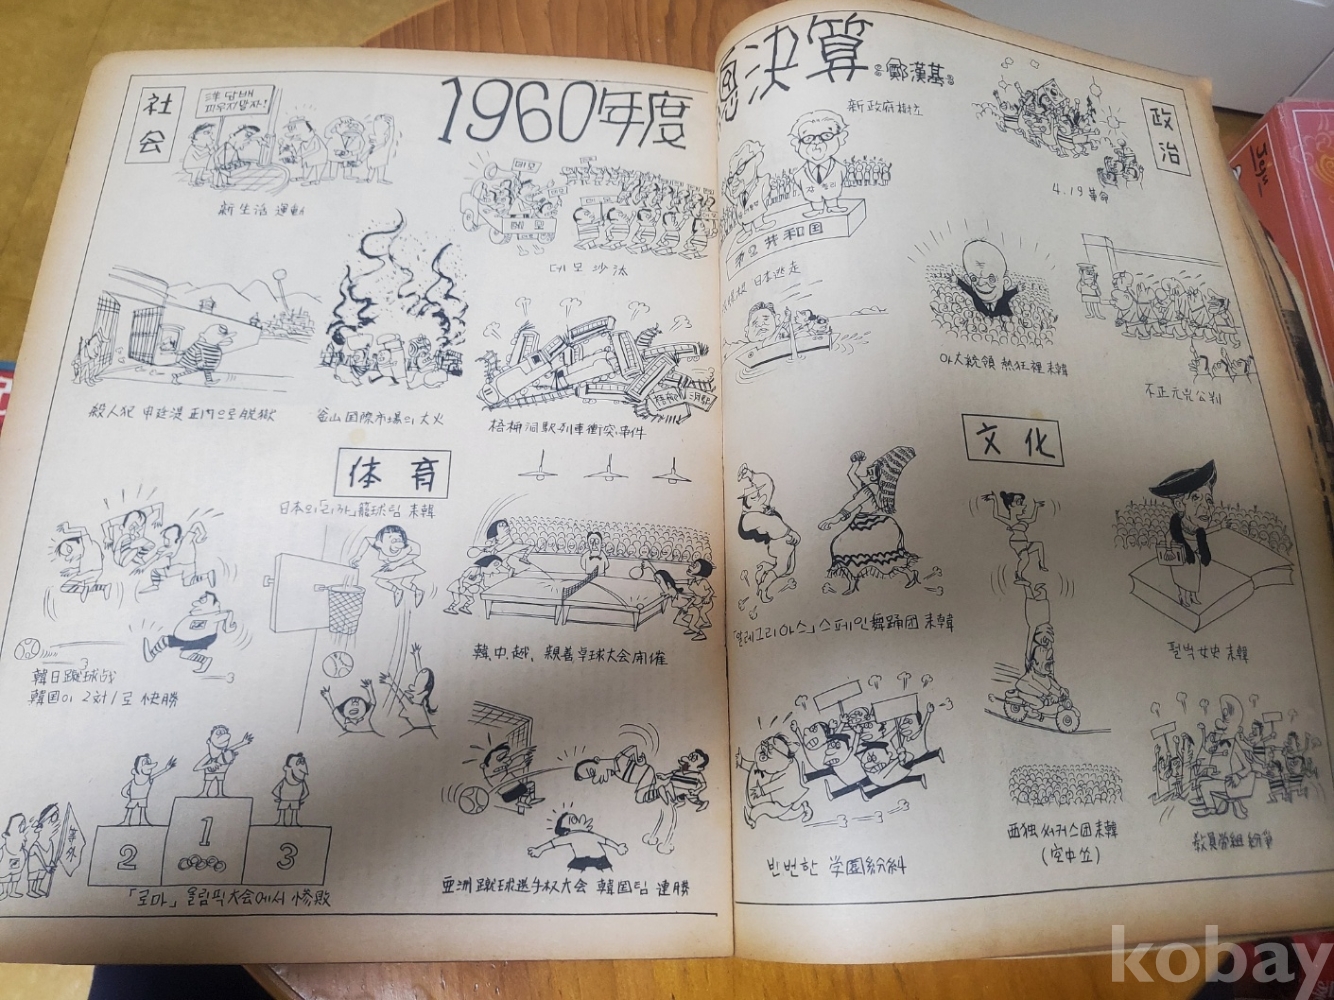 1960年度
總決算
鄭漢基
社会
洋담배
피우지말자!
新生活 運動
데모
데모
데모沙汰
殺人犯 申廷漢 正門으로 脱獄
釜山国際市場의 大火
梧柳洞駅列車衝突事件
体育
日本의「니까」籠球팀 来韓
韓日蹴球战
韓国이 2対1로 快勝
韓、中、越、親善卓球大会開催
2
1
3
等外
「로마」올림픽大会에서 惨敗
亜洲蹴球选手权大会 韓国팀 連勝
政治
新政府樹立
共和国
日本逃走
4.19革命
아大統領 熱狂裡来韓
不正元兇公判
文化
스페인舞踊団 来韓
펄벅女史 来韓
빈번한 学園紛糾
西独써커스団来韓
(空中쑈)
教員労組紛争
kobay